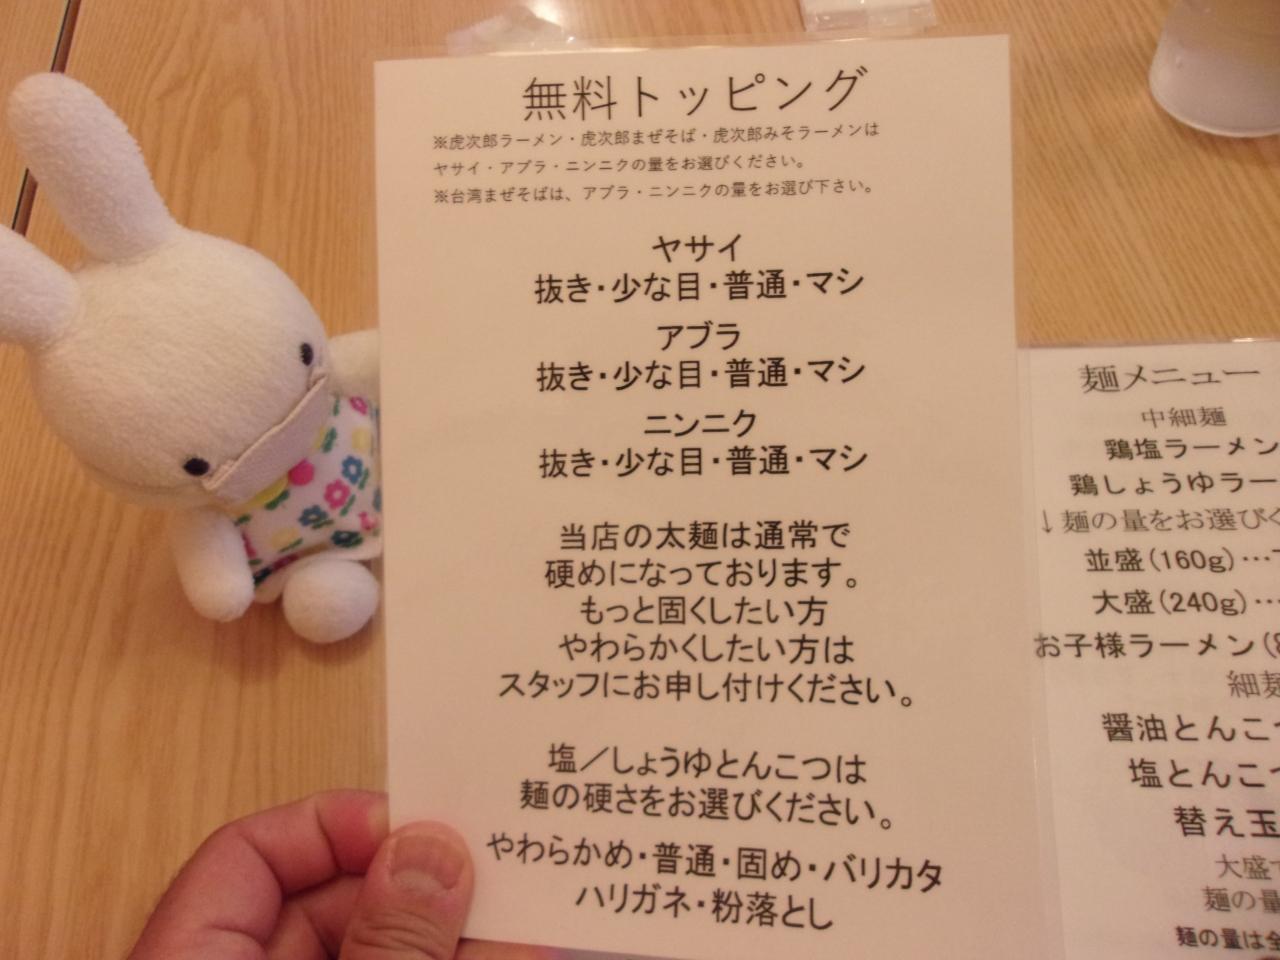 無料トッピング
※虎次郎ラーメン・虎次郎まぜそば・虎次郎みそラーメンは
ヤサイ・アブラ・ニンニクの量をお選びください。
※台湾まぜそばは、アブラ・ニンニクの量をお選び下さい。
ヤサイ
抜き・少な目・普通・マシ
アブラ
抜き・少な目・普通・マシ
ニンニク
抜き・少な目・普通・マシ
当店の太麺は通常で
硬めになっております。
もっと固くしたい方
やわらかくしたい方は
スタッフにお申し付けください。
塩／しょうゆとんこつは
麺の硬さをお選びください。
やわらかめ・普通・固め・バリカタ
ハリガネ・粉落とし
麺メニュー
中細麺
鶏塩ラーメン
鶏しょうゆラー
↓麺の量をお選びく
並盛(160g)…
大盛(240g)…
お子様ラーメン(
細麺
醤油とんこつ
塩とんこつ
替え玉
大盛
麺の量
麺の量は全